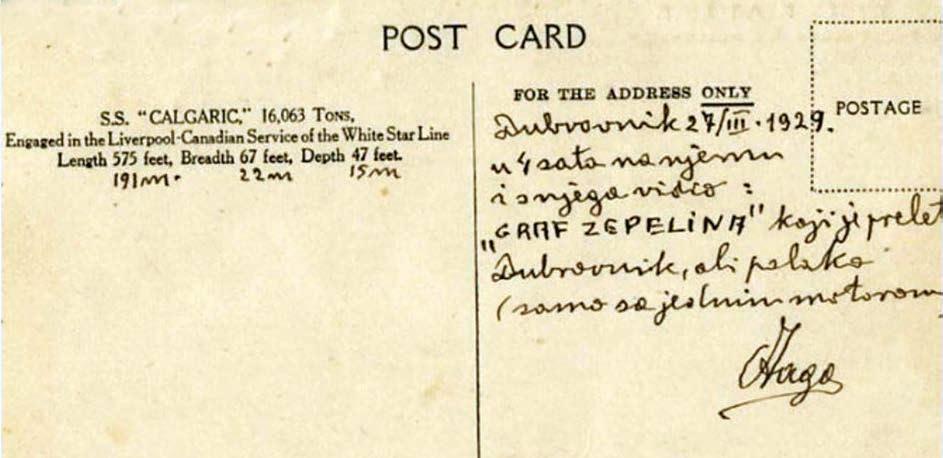 POST CARD
S.S. "CALGARIC," 16,063 TONS,
Engaged in the Liverpool-Canadian Service of the White Star Line
Length 575 feet, Breadth 67 feet, Depth 47 feet.
191m. 22m 15m
FOR THE ADDRESS ONLY
POSTAGE
Dubrovnik 27/III. 1929.
u 4 sata na njemu
i s njega vidio :
"GRAF ZEPELINA" koji je prelet
Dubrovnik, ali polako
(samo sa jednim motorom